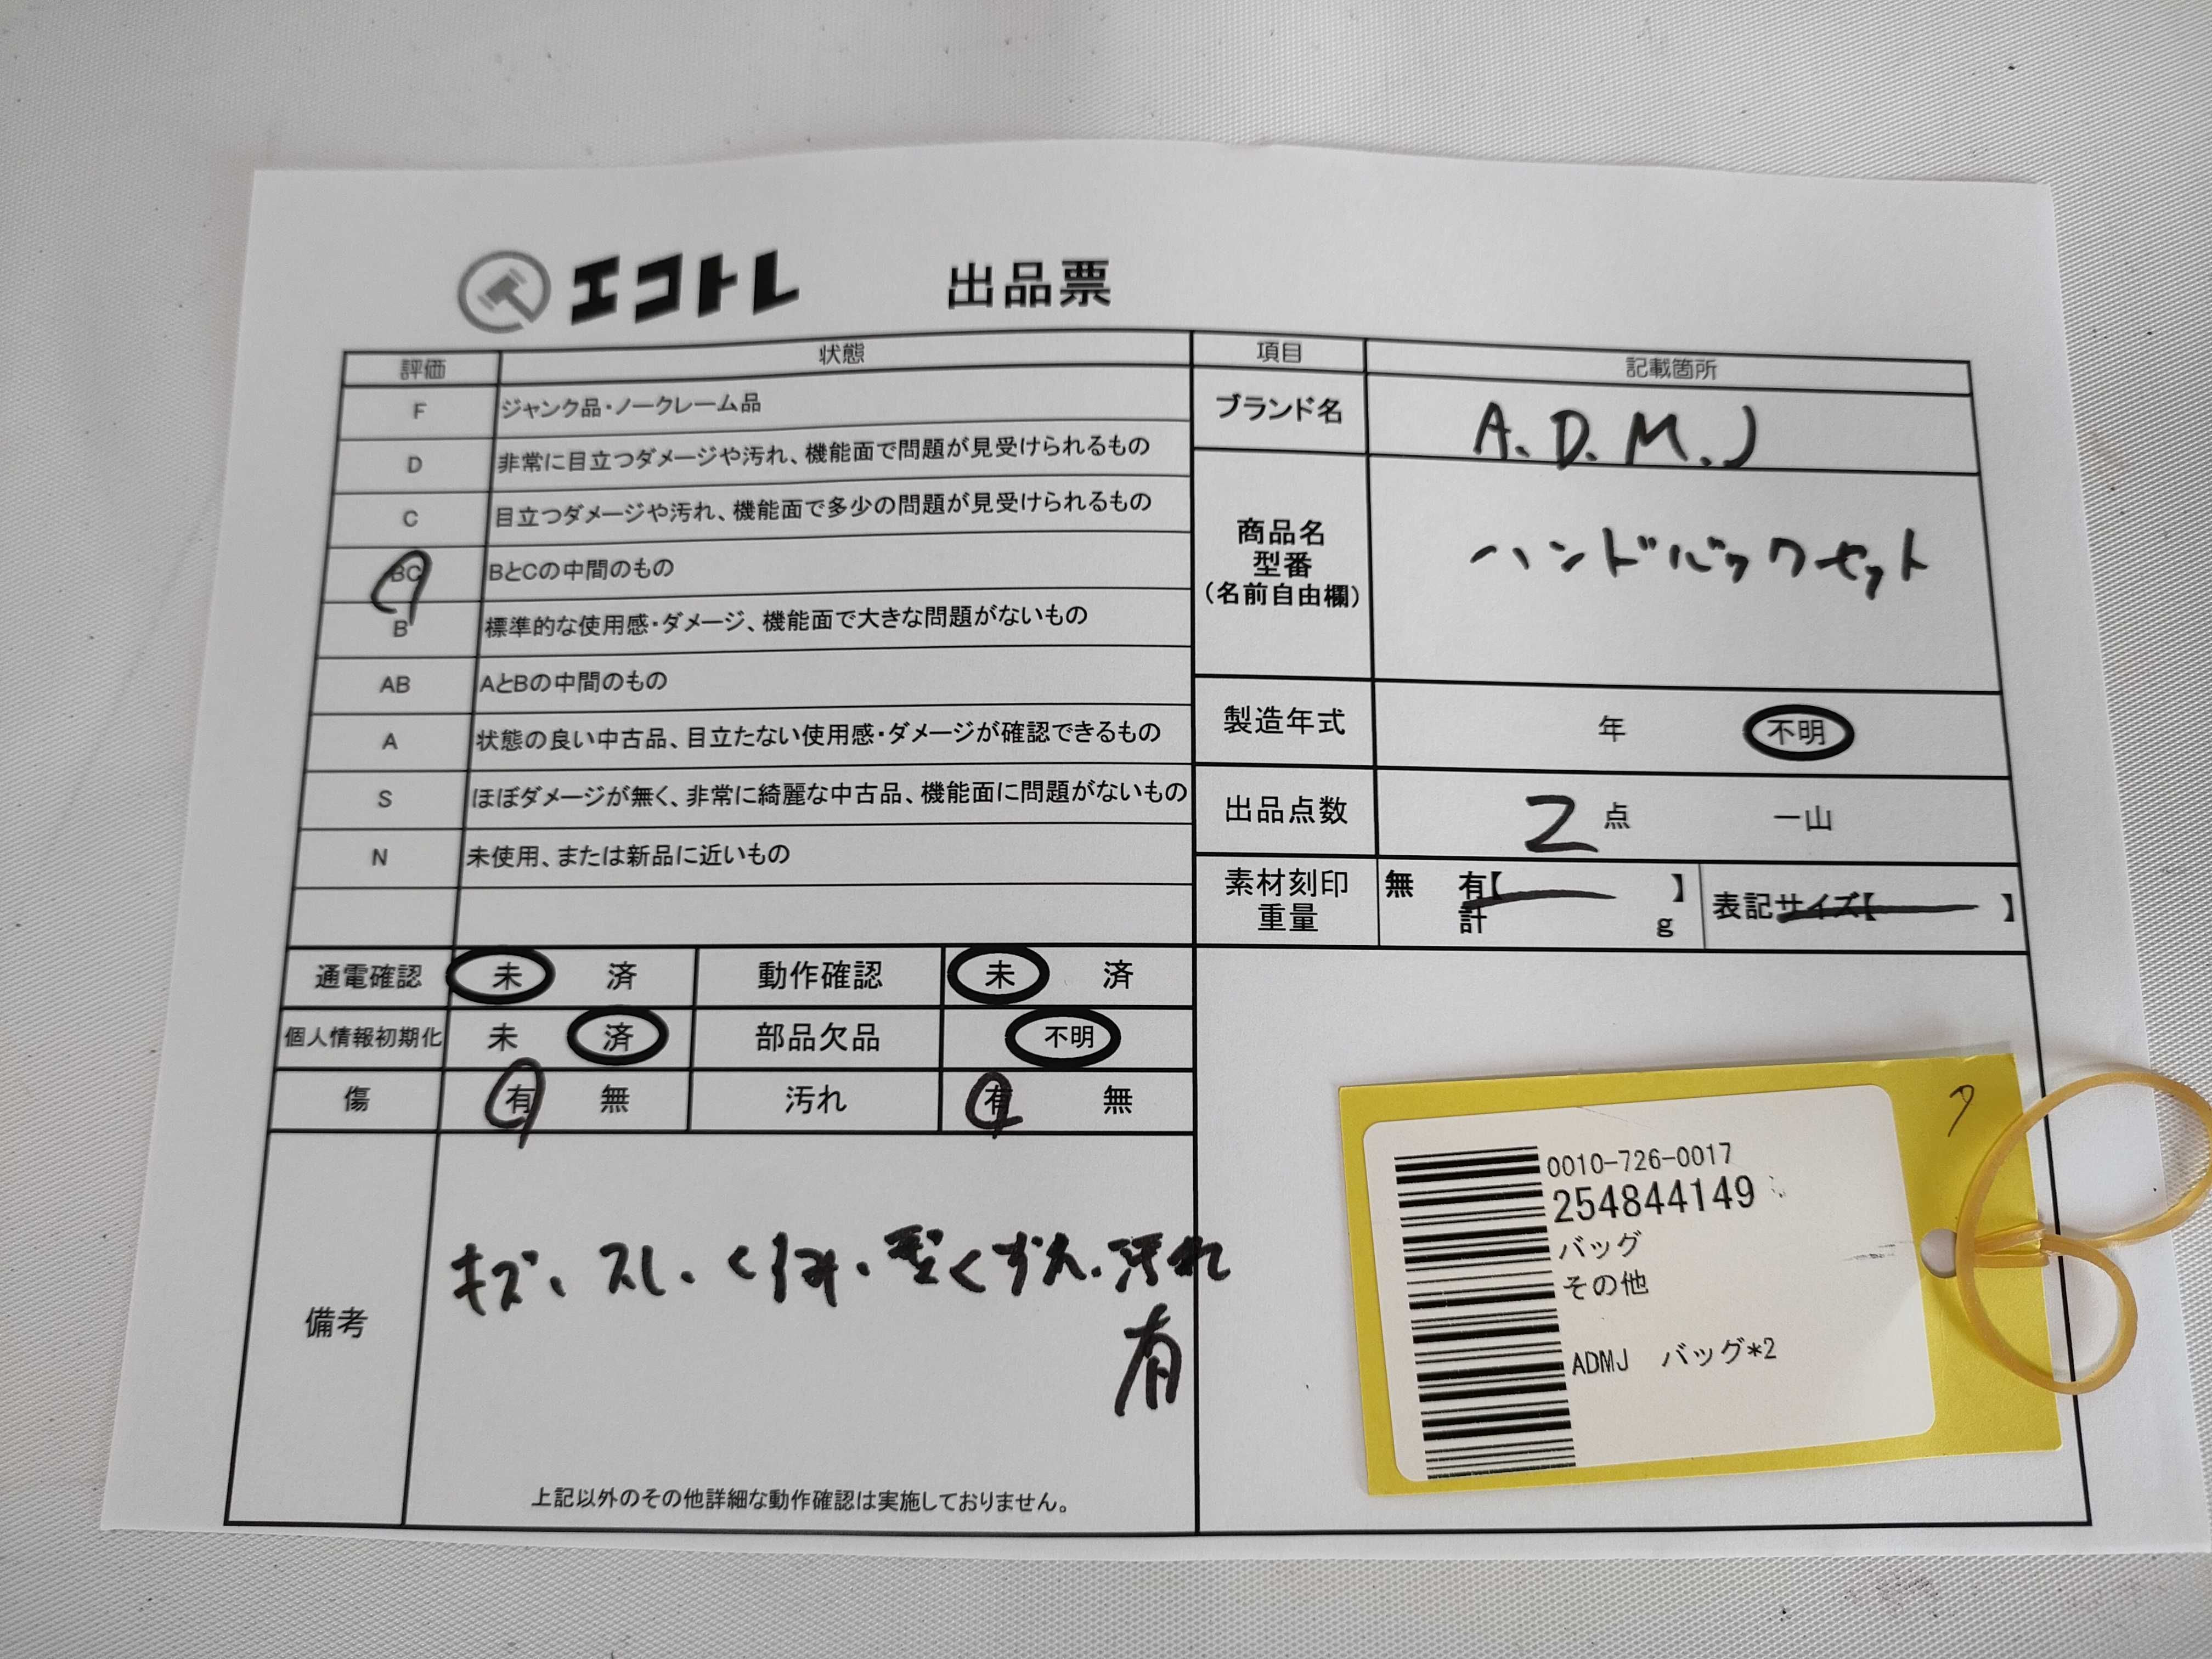 エコトレ 出品票
評価 状態
F ジャンク品・ノークレーム品
D 非常に目立つダメージや汚れ、機能面で問題が見受けられるもの
C 目立つダメージや汚れ、機能面で多少の問題が見受けられるもの
BC BとCの中間のもの
B 標準的な使用感・ダメージ、機能面で大きな問題がないもの
AB AとBの中間のもの
A 状態の良い中古品、目立たない使用感・ダメージが確認できるもの
S ほぼダメージが無く、非常に綺麗な中古品、機能面に問題がないもの
N 未使用、または新品に近いもの
項目 記載箇所
ブランド名 A.D.M.J
商品名
型番
(名前自由欄)
ハンドバックセット
製造年式 年 不明
出品点数 2 点 一山
素材刻印 無 有【 】 表記サイズ【 】
重量 計 g
通電確認 未 済 動作確認 未 済
個人情報初期化 未 済 部品欠品 不明
傷 有 無 汚れ 有 無
備考
キズ、スレ、くすみ、型くずれ、汚れ
有
上記以外のその他詳細な動作確認は実施しておりません。
0010-726-0017
254844149
バッグ
その他
ADMJ バッグ*2